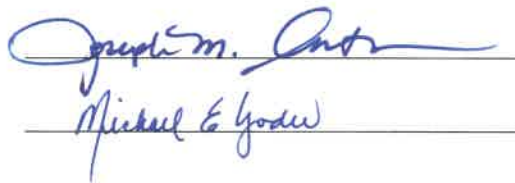 Joseph M.
Michael E Yoder